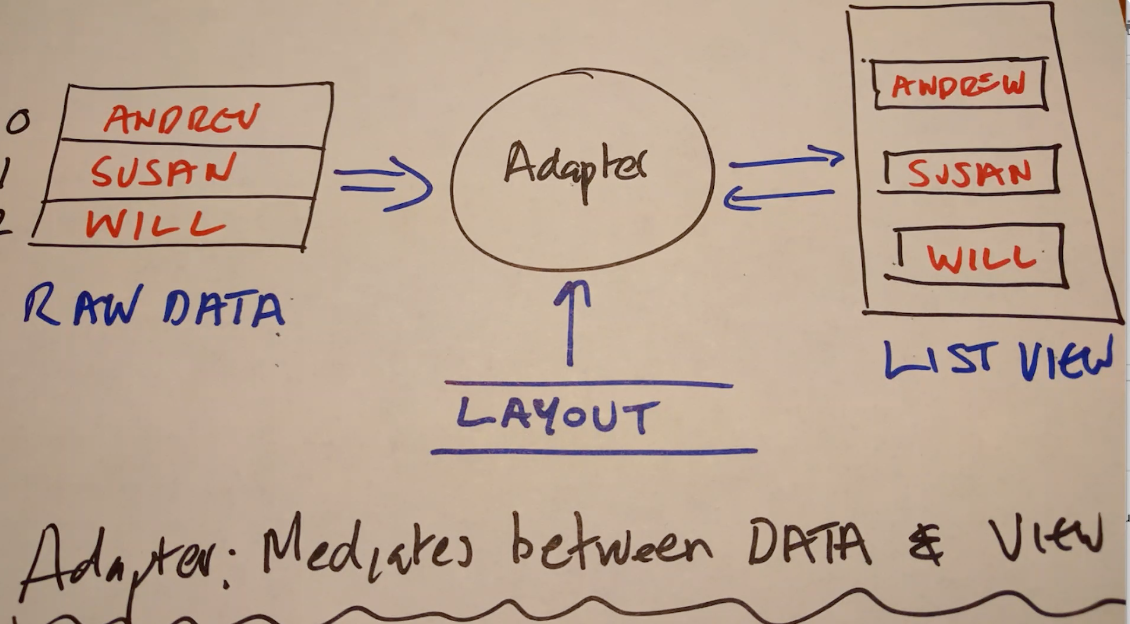 0 ANDREW
1 SUSAN
2 WILL
RAW DATA
Adapter
LAYOUT
ANDREW
SUSAN
WILL
LIST VIEW
Adapter: Mediates between DATA & VIEW